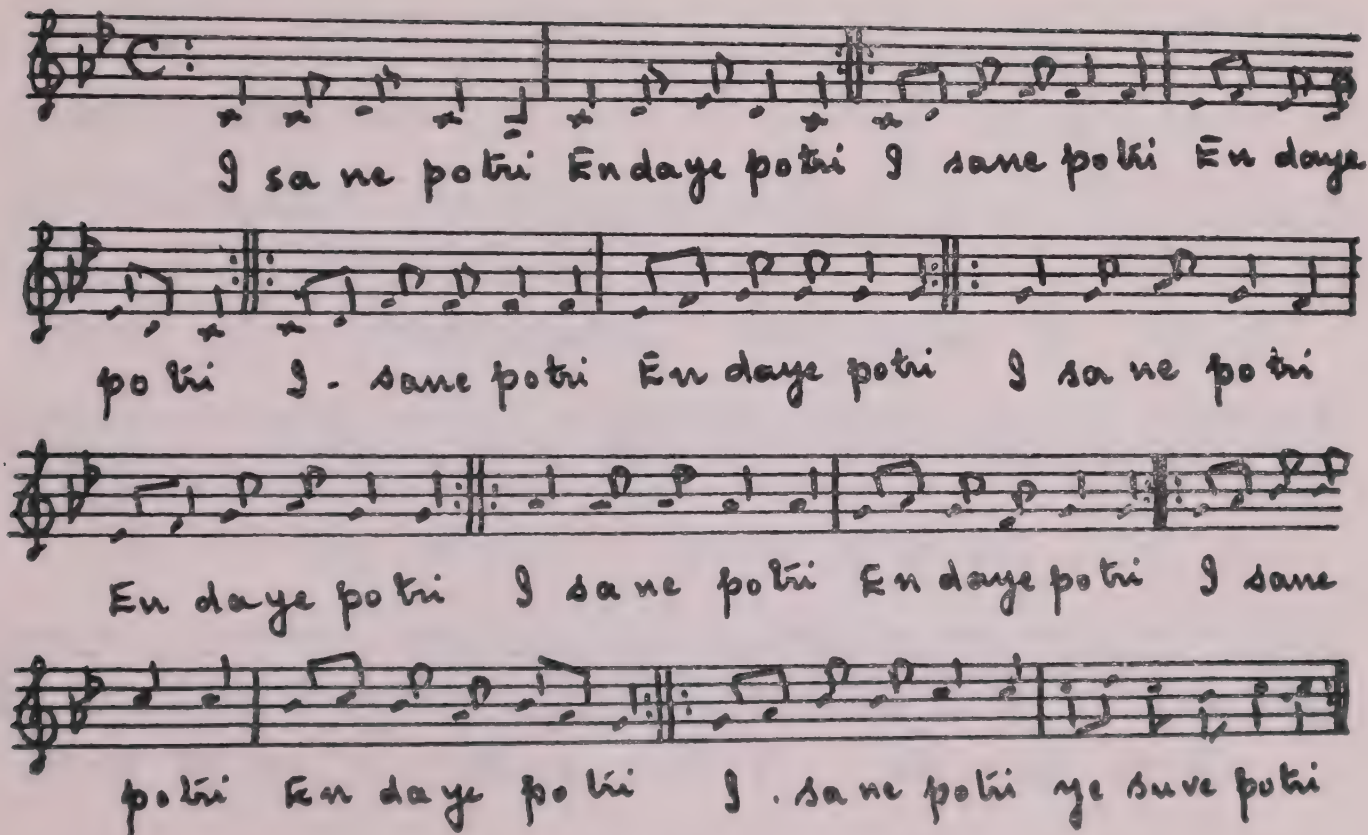 I sa ne potri Endaye potri I sane potri En daye
po tri I. sane potri En daye potri I sa ne po tri
En da ye po tri I sa ne po tri En daye potri I sane
potri En da ye po tri I. sa ne potri ye suve potri